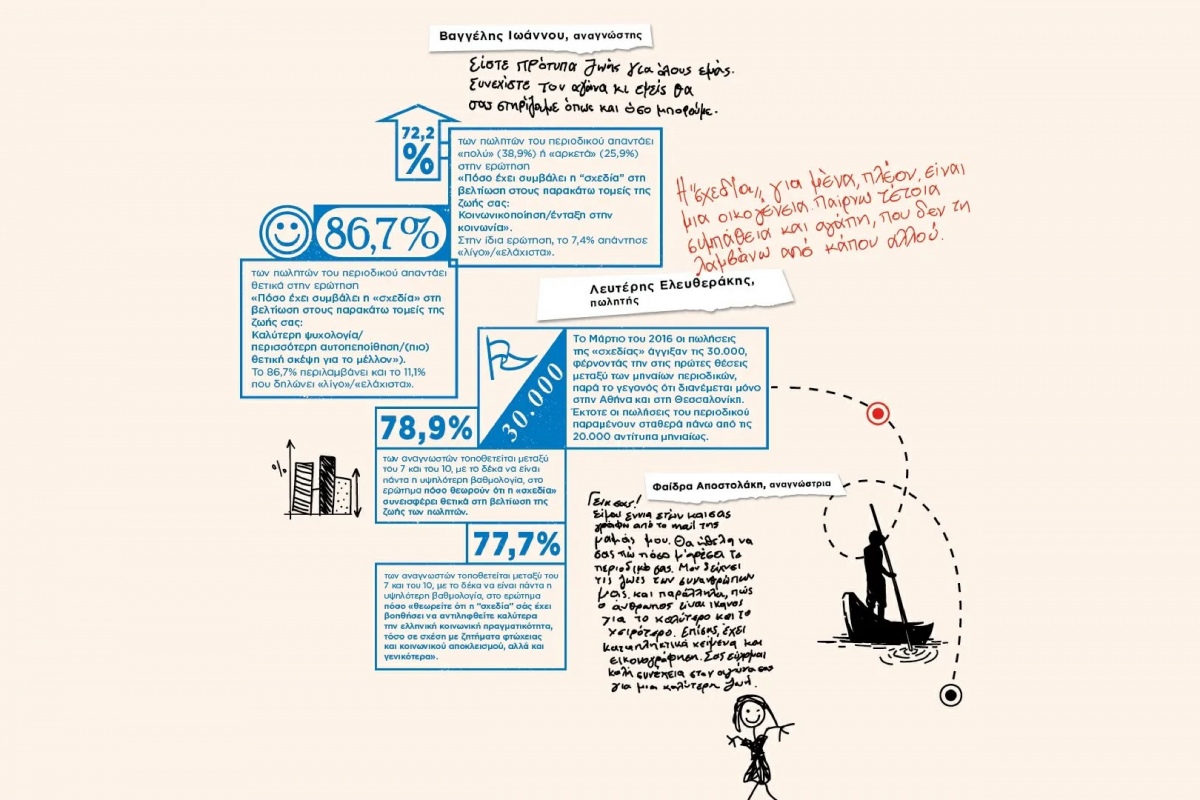 Βαγγέλης Ιωάννου, αναγνώστης
Είστε πρότυπα ζωής για όλους εμάς.
Συνεχίστε τον αγώνα κι εμείς θα
σας στηρίζουμε όπως και όσο μπορούμε.
72,2
%
των πωλητών του περιοδικού απαντάει
«πολύ» (38,9%) ή «αρκετά» (25,9%)
στην ερώτηση
«Πόσο έχει συμβάλει η “σχεδία” στη
βελτίωση στους παρακάτω τομείς της
ζωής σας:
Κοινωνικοποίηση/ένταξη στην
κοινωνία».
Στην ίδια ερώτηση, το 7,4% απάντησε
«λίγο»/«ελάχιστα».
Η "σχεδία", για μένα, πλέον, είναι
μια οικογένεια. Παίρνω τέτοια
συμπάθεια και αγάπη, που δεν τη
λαμβάνω από κάπου αλλού.
Λευτέρης Ελευθεράκης,
πωλητής
86,7%
των πωλητών του περιοδικού απαντάει
θετικά στην ερώτηση
«Πόσο έχει συμβάλει η «σχεδία» στη
βελτίωση στους παρακάτω τομείς της
ζωής σας:
Καλύτερη ψυχολογία/
περισσότερη αυτοπεποίθηση/(πιο)
θετική σκέψη για το μέλλον»).
Το 86,7% περιλαμβάνει και το 11,1%
που δηλώνει «λίγο»/«ελάχιστα».
30.000
Το Μάρτιο του 2016 οι πωλήσεις
της «σχεδίας» άγγιξαν τις 30.000,
φέρνοντάς την στις πρώτες θέσεις
μεταξύ των μηνιαίων περιοδικών,
παρά το γεγονός ότι διανέμεται μόνο
στην Αθήνα και στη Θεσσαλονίκη.
Έκτοτε οι πωλήσεις του περιοδικού
παραμένουν σταθερά πάνω από τις
20.000 αντίτυπα μηνιαίως.
78,9%
των αναγνωστών τοποθετείται μεταξύ
του 7 και του 10, με το δέκα να είναι
πάντα η υψηλότερη βαθμολογία, στο
ερώτημα πόσο θεωρούν ότι η «σχεδία»
συνεισφέρει θετικά στη βελτίωση της
ζωής των πωλητών.
%
77,7%
των αναγνωστών τοποθετείται μεταξύ του
7 και του 10, με το δέκα να είναι πάντα η
υψηλότερη βαθμολογία, στο ερώτημα
πόσο «θεωρείτε ότι η “σχεδία” σάς έχει
βοηθήσει να αντιληφθείτε καλύτερα
την ελληνική κοινωνική πραγματικότητα,
τόσο σε σχέση με ζητήματα φτώχειας
και κοινωνικού αποκλεισμού, αλλά και
γενικότερα».
Φαίδρα Αποστολάκη, αναγνώστρια
Γεια σας!
Είμαι εννιά ετών και σας
γράφω από το mail της
μαμάς μου. Θα ήθελα να
σας πω πόσο μ'αρέσει το
περιοδικό σας. Μου δείχνει
τις ζωές των συνανθρώπων
μας και παράλληλα, πώς
ο άνθρωπος είναι ικανός
για το καλύτερο και το
χειρότερο. Επίσης, έχει
καταπληκτικά κείμενα και
εικονογράφηση. Σας εύχομαι
καλή συνέχεια στον αγώνα σας
για μια καλύτερη ζωή.